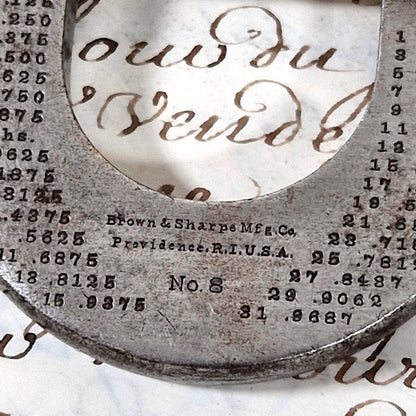 .125
.250
.375
.500
.625
.750
.875
hs.
.0625
.1875
.8125
.4375
.5625
11 .6875
13 .8125
15 .9375
ou du
Vende
Brown & Sharpe Mfg. Co.
Providence. R.I. U.S.A.
No. 8
1
3
5
7
9
11
13
15
17
19 .5
21 .6
23 .71
25 .781
27 .8437
29 .9062
31 .9687